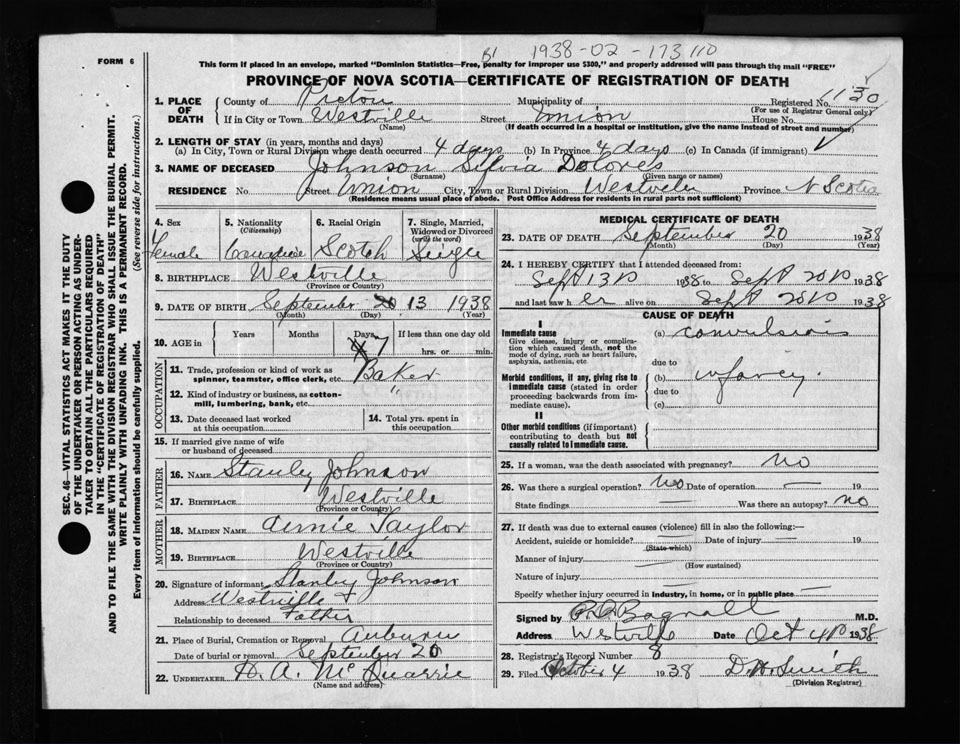 B1 1938-02-173110
FORM 6
This form if placed in an envelope, marked "Dominion Statistics—Free, penalty for improper use $300," and properly addressed will pass through the mail "FREE"
PROVINCE OF NOVA SCOTIA—CERTIFICATE OF REGISTRATION OF DEATH
SEC. 46—VITAL STATISTICS ACT MAKES IT THE DUTY
OF THE UNDERTAKER OR PERSON ACTING AS UNDER-
TAKER TO OBTAIN ALL THE PARTICULARS REQUIRED
IN THE "CERTIFICATE OF REGISTRATION OF DEATH"
AND TO FILE THE SAME WITH THE DIVISION REGISTRAR WHO SHALL ISSUE THE BURIAL PERMIT.
WRITE PLAINLY WITH UNFADING INK. THIS IS A PERMANENT RECORD.
Every item of information should be carefully supplied. (See reverse side for instructions.)
1. PLACE OF DEATH County of Pictou Municipality of Registered No. 1130
(For use of Registrar General only)
If in City or Town Westville Street Union House No.
(Name) (If death occurred in a hospital or institution, give the name instead of street and number)
2. LENGTH OF STAY (in years, months and days)
(a) In City, Town or Rural Division where death occurred 4 days (b) In Province 4 days (c) In Canada (if immigrant)
3. NAME OF DECEASED Johnson Sylvia Dolores
(Surname) (Given name or names)
RESIDENCE No. Street Union City, Town or Rural Division Westville Province N Scotia
(Residence means usual place of abode. Post Office Address for residents in rural parts not sufficient)
4. Sex Female
5. Nationality (Citizenship) Canadian
6. Racial Origin Scotch
7. Single, Married, Widowed or Divorced (write the word) Single
8. BIRTHPLACE Westville
(Province or Country)
9. DATE OF BIRTH September 20 13 1938
(Month) (Day) (Year)
10. AGE in Years Months Days 7 If less than one day old
hrs. or min.
OCCUPATION
11. Trade, profession or kind of work as spinner, teamster, office clerk, etc. Baker
12. Kind of industry or business, as cotton-mill, lumbering, bank, etc. "
13. Date deceased last worked at this occupation
14. Total yrs. spent in this occupation
15. If married give name of wife or husband of deceased
FATHER
16. NAME Stanley Johnson
17. BIRTHPLACE Westville
(Province or Country)
MOTHER
18. MAIDEN NAME Taylor
19. BIRTHPLACE Westville
(Province or Country)
20. Signature of informant Stanley Johnson
Address Westville
Relationship to deceased Father
21. Place of Burial, Cremation or Removal Auburn
Date of burial or removal September 20
22. UNDERTAKER D. A. McQuarrie
(Name and address)
MEDICAL CERTIFICATE OF DEATH
23. DATE OF DEATH September 20 1938
(Month) (Day) (Year)
24. I HEREBY CERTIFY that I attended deceased from:
Sept 13th 1938 to Sept 20th 1938
and last saw her alive on Sept 20th 1938
CAUSE OF DEATH
I
Immediate cause (a) convulsions
Give disease, injury or complication which caused death, not the mode of dying, such as heart failure, asphyxia, asthenia, etc
due to
Morbid conditions, if any, giving rise to immediate cause (stated in order proceeding backwards from immediate cause). (b) infancy.
due to
(c)
II
Other morbid conditions (if important) contributing to death but not causally related to immediate cause.
25. If a woman, was the death associated with pregnancy? no
26. Was there a surgical operation? no Date of operation — 19
State findings Was there an autopsy? no
27. If death was due to external causes (violence) fill in also the following:—
Accident, suicide or homicide? — Date of injury — 19
(State which)
Manner of injury —
(How sustained)
Nature of injury —
Specify whether injury occurred in industry, in home, or in public place —
Signed by Bagnall M.D.
Address Westville Date Oct 4th 1938
28. Registrar's Record Number 8
29. Filed October 4 1938 D W Smith
(Division Registrar)